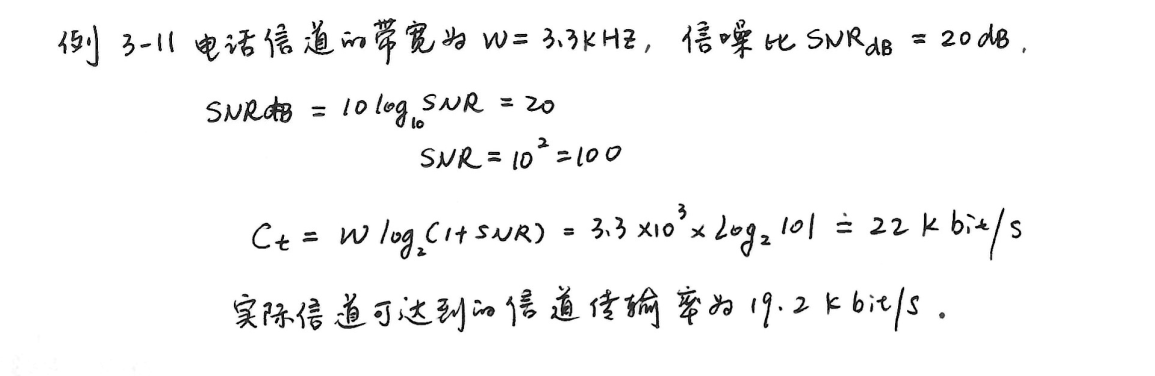 例 3-11 电话信道的带宽为 W = 3.3KHZ, 信噪比 SNR_dB = 20dB.
SNR_dB = 10 log_10 SNR = 20
SNR = 10^2 = 100
C_t = W log_2(1+SNR) = 3.3 ×10^3 × Log_2 101 ≐ 22 k bit/s
实际信道可达到的信道传输率为 19.2 k bit/s.